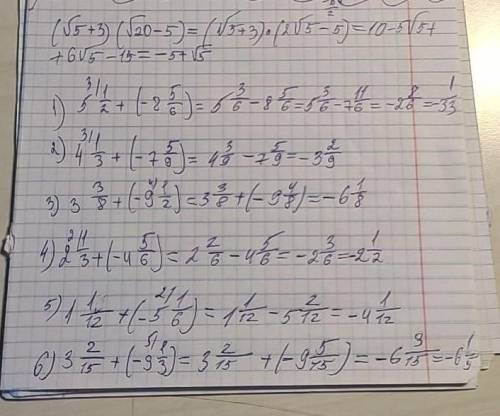 (√5+3)(√20-5)=(√5+3)·(2√5-5)=10-5√5+
+6√5-15=-5+√5
1) 5 3\1/2 + (-8 5/6) = 5 3/6 - 8 5/6 = 5 3/6 - 7 11/6 = -2 8/6 = -3 1/3
2) 4 3\1/3 + (-7 5/9) = 4 3/9 - 7 5/9 = -3 2/9
3) 3 3/8 + (-9 4\1/2) = 3 3/8 + (-9 4/8) = -6 1/8
4) 2 2\1/3 + (-4 5/6) = 2 2/6 - 4 5/6 = -2 3/6 = -2 1/2
5) 1 1/12 + (-5 2\1/6) = 1 1/12 - 5 2/12 = -4 1/12
6) 3 2/15 + (-9 5\1/3) = 3 2/15 + (-9 5/15) = -6 3/15 = -6 1/5